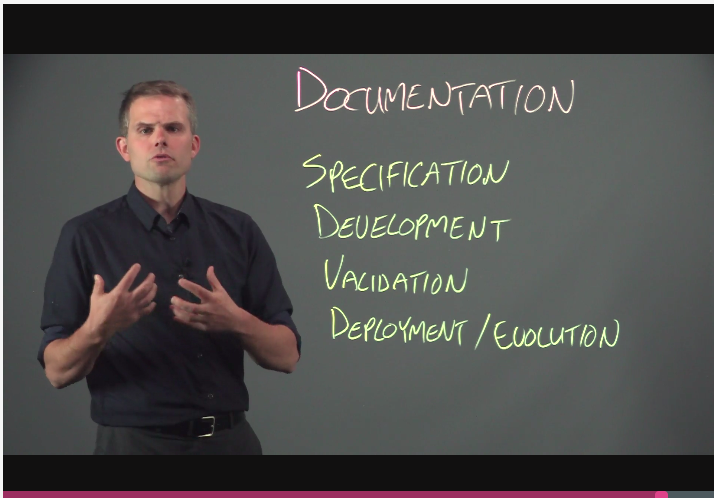 DOCUMENTATION
SPECIFICATION
DEVELOPMENT
VALIDATION
DEPLOYMENT/EVOLUTION